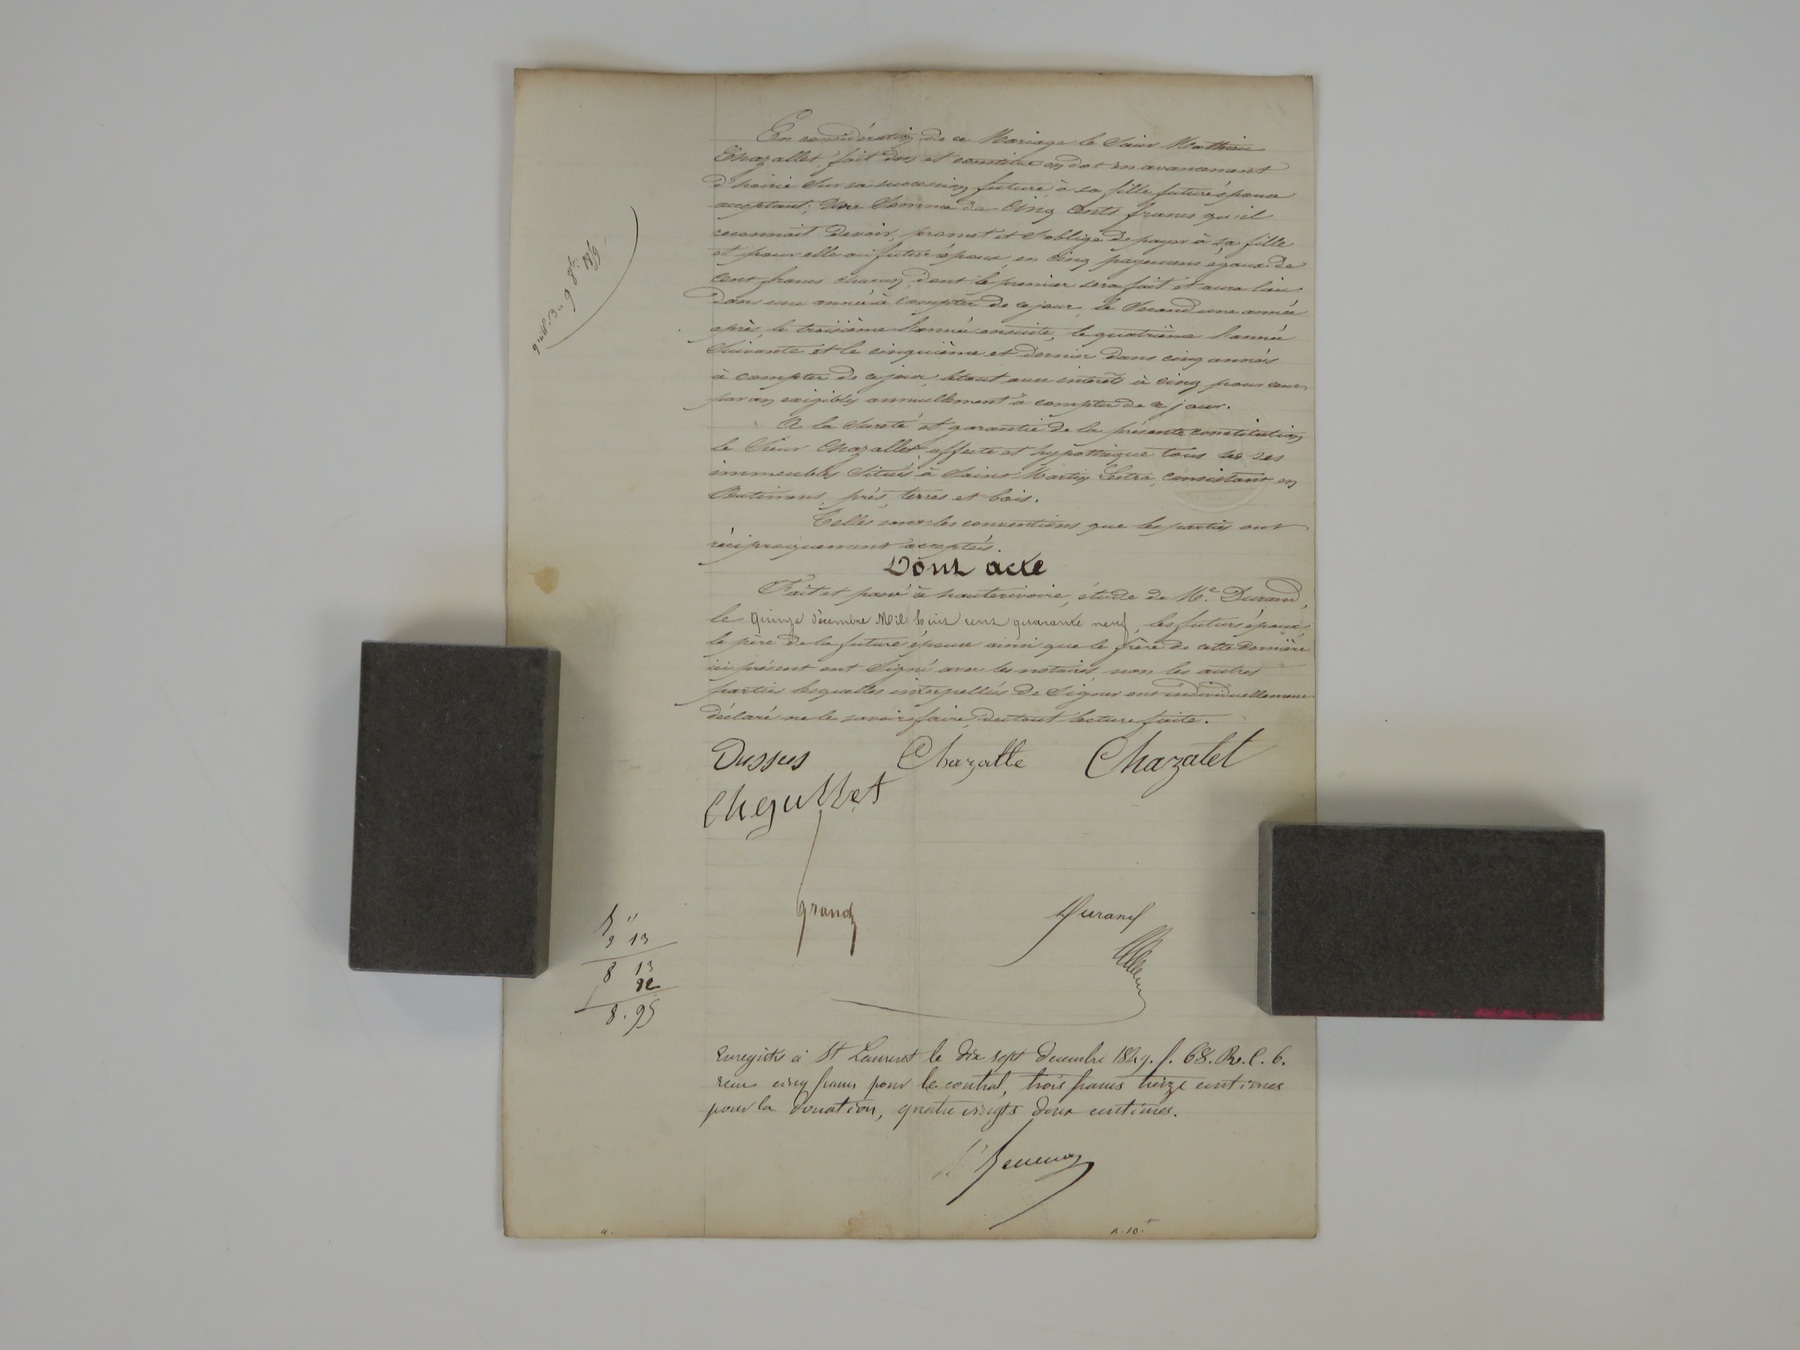 En considération de ce Mariage le Sieur Mathieu
Chazallet fait don et constitue en dot en avancement
d'hoirie sur sa succession future à sa fille future épouse
acceptant; Une Somme de Cinq Cents francs qu'il
reconnait devoir, promet et s'oblige de payer à sa fille
et pour elle au futur époux en cinq payemens égaux de
cent francs chacun, dont le premier sera fait et aura lieu
Dans une année à compter de ce jour, le second une année
après, le troisième l'année ensuite, le quatrième l'année
suivante et le cinquième et dernier dans cinq années
à compter de ce jour, le tout avec intérêts à cinq pour cent
par an exigibles annuellement à compter de ce jour.
A la sureté et garantie de la présente constitution
le Sieur Chazallet affecte et hypothèque tous les ses
immeubles situés à Saint Martin Lestra, consistant en
Batimens, prés, terres et bois.
Telles sont les conventions que les parties ont
réciproquement acceptées.
Dont acte
Fait et passé à hauterivoire, étude de Me. Durand,
le quinze décembre Mil huit cent quarante neuf, les futurs époux
le père de la future épouse ainsi que le frère de cette dernière
ici présent ont signé avec les notaires, non les autres
parties lesquelles interpellées de signer ont individuellement
déclaré ne le savoir faire, du tout lecture faite.
Dussus Chazalle Chazalet
grand Durand
5 "
3 13
8 13
82
8.95
Enregistré à St Laurent le dix sept décembre 1849. f. 68. Ro. C. 6.
reçu cinq francs pour le contrat, trois francs treize centimes
pour la donation, quatre vingts deux centimes.